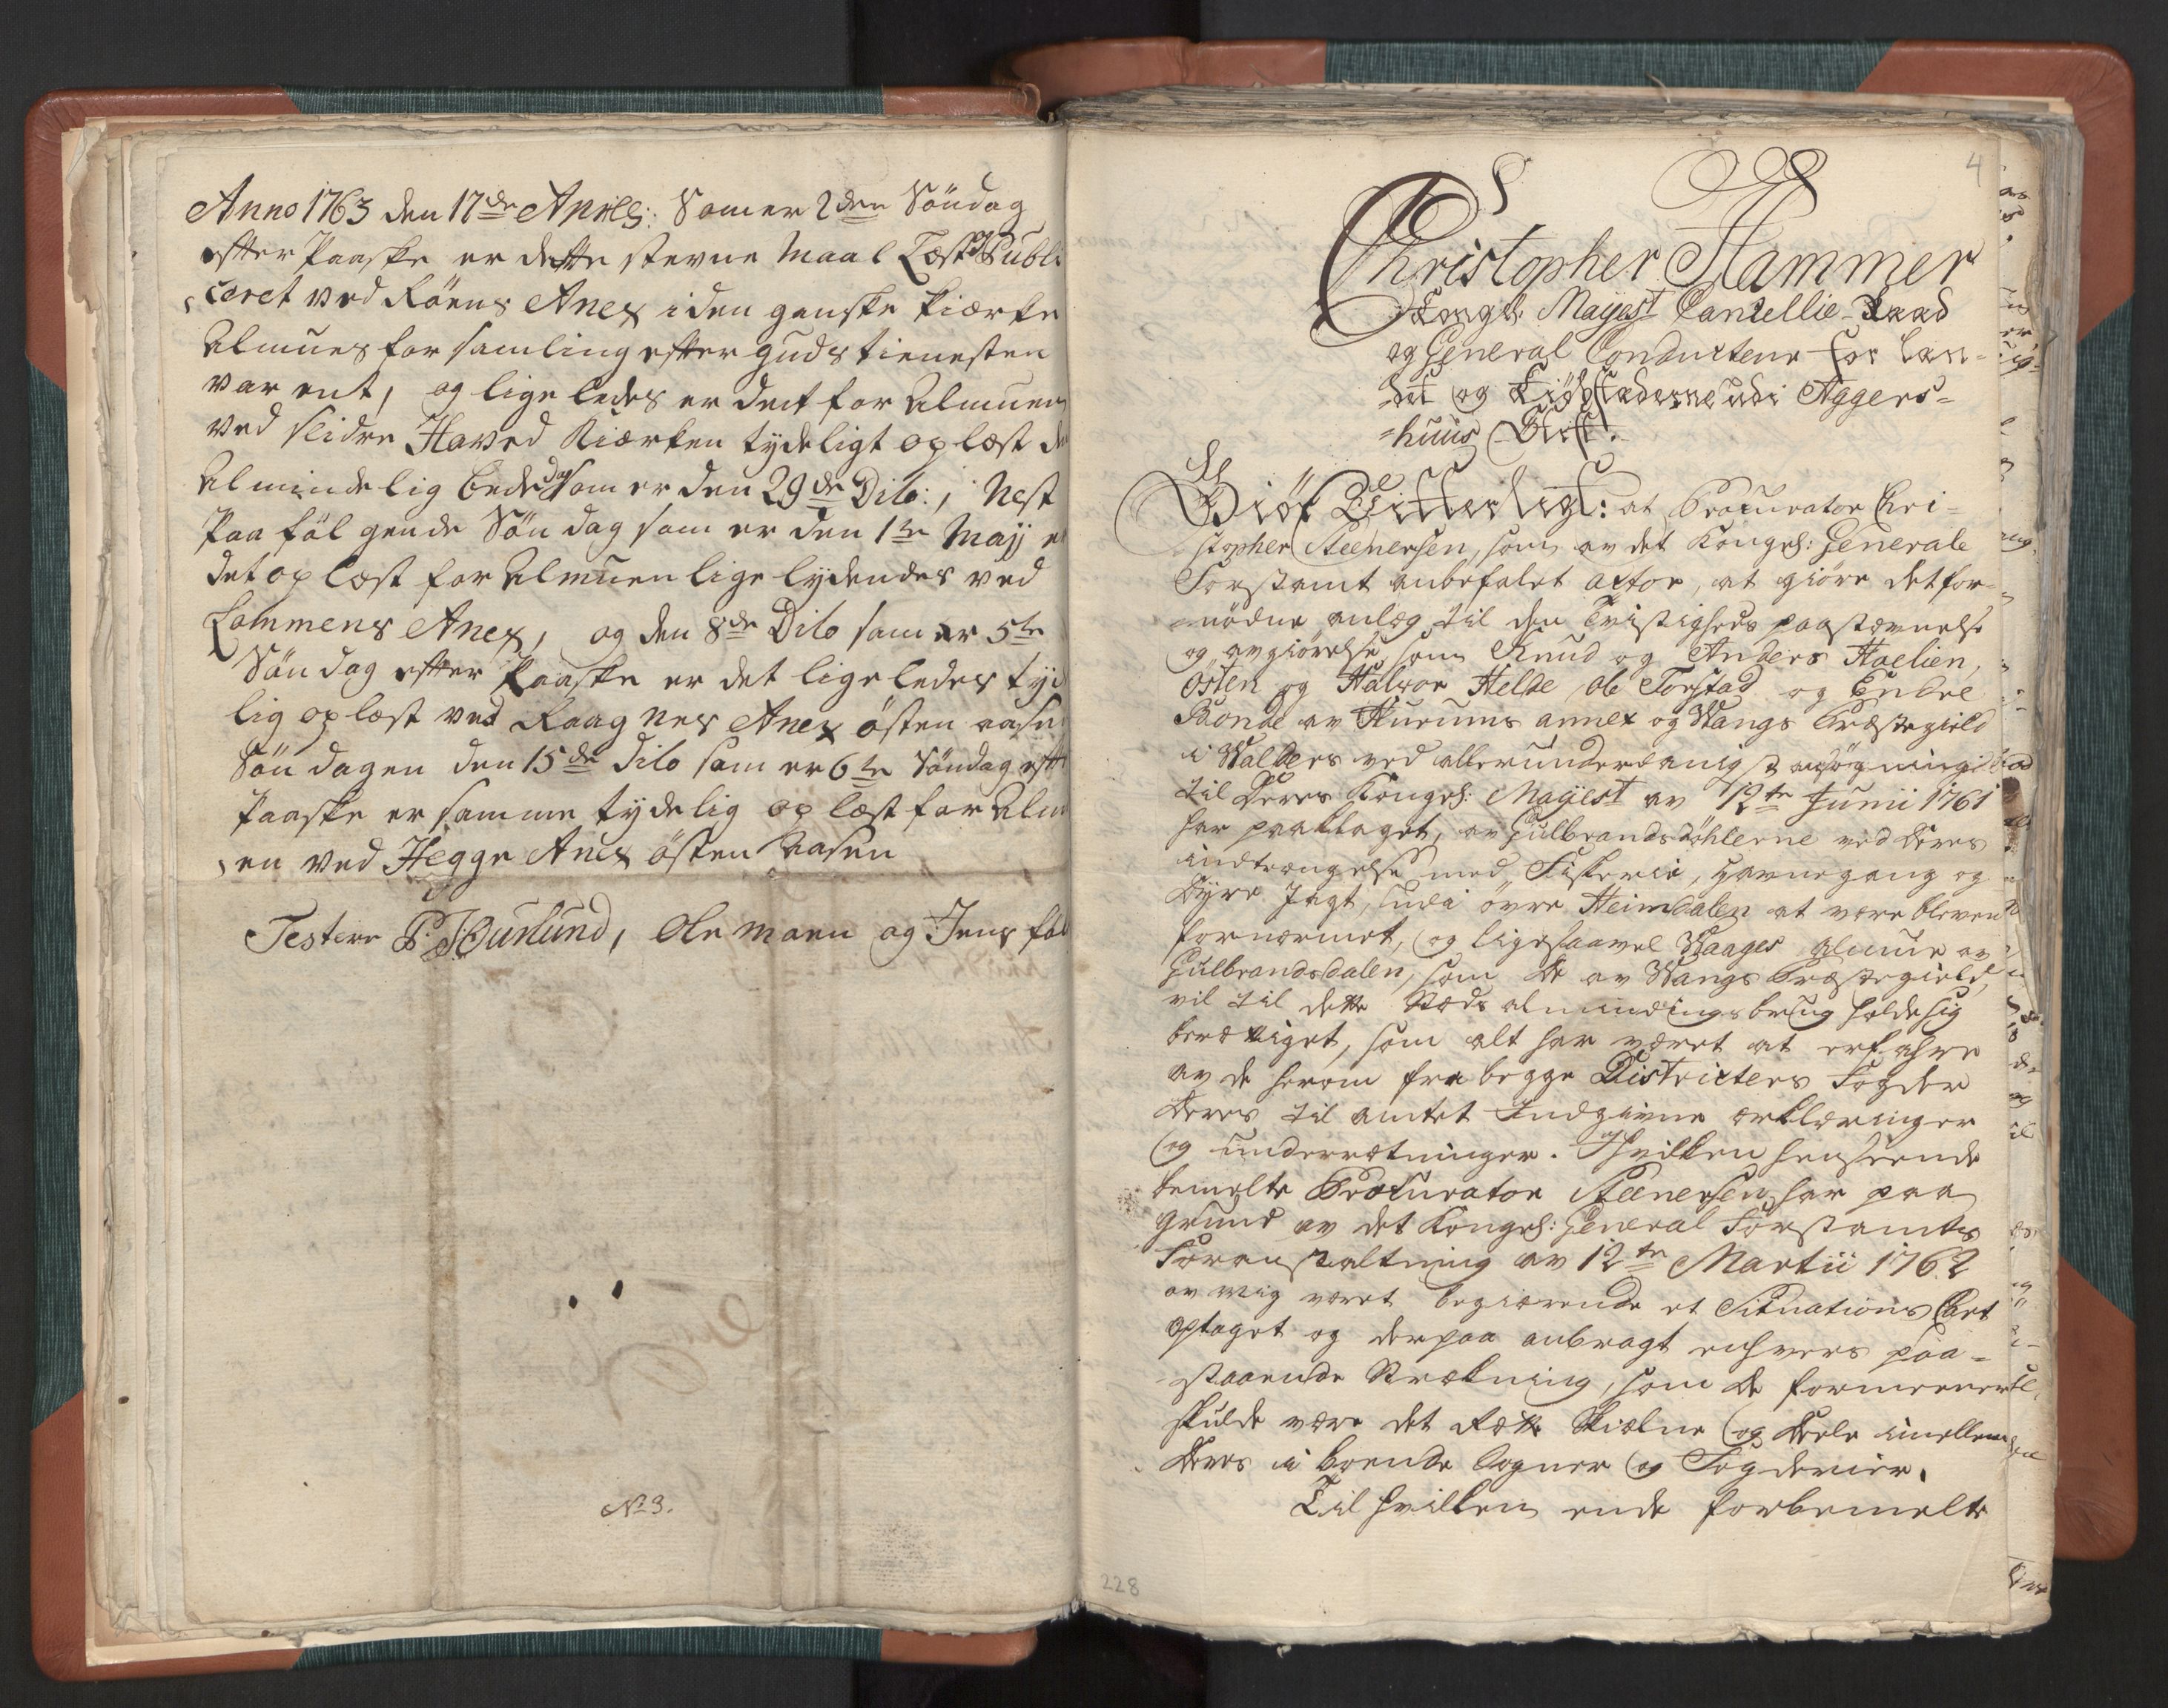 Anno 1763 den 17de Aprili: Som er 2den Söndag
efter Paaske er dette stevne Maal Læst Publi
ceret ved Röens Anex i den ganske kiærke
Almues forsamling efter guds tienesten
var ent, og lige ledes er det for Almuen
ved Slidre Haved Kiærken tydeligt oplæst d
Almindelig bededag som er den 29de Dito:, Nest
Paa fölgende Söndag som er den 1te Maij e
det oplæst for Almuen lige lydendes ved
Lommens Anex, og den 8de Dito som er 5te
Söndag efter Paaske er det lige ledes tyd
lig oplæst ved Raagnes Anex östen aase
Söndagen den 15de dito som er 6te Söndag eft
Paaske er samme tydelig oplæst for Alm
en ved Hegge Anex östen Aasen
Testere Ole Moen og Jens
No 3.
4
Christopher Hammer
Kongl: Mayest Cancellie-Raad
og General Conducteur for Lan-
det og Kiöbstæderne udi Aggers-
huus Stift.
Giör Vitterligt: at Procurator Chri-
stopher Steenersen, som av det Kongel: Generale
Forstamt anbefalet actor, at giöre det for-
nødne anlæg til den Tvistigheds paastævnelse
og avgiörelse, som Knud og Anders Haelien,
Östen og Halvor Helde, Ole Torstad og Endre
Bonde av Hurums annex og Wangs Præstegield
i Walders ved allerunderdanigst ansögning
til Deres Kongel: Mayest av 12te Junii 1761
har paaklaget, av Gulbrandsdöhlerne ved deres
indtrængelse med Fiskerie, havnegang og
Dyre Jagt, udi övre Heimdalen at være bleven
fornærmet, og ligesaavel Waages almue av
Gulbrandsdalen, som de av Wangs Præstegield,
vil til dette Stæds almindings brug holde sig
berættiget, som alt har været at erfahre
av de herom fra begge Districters Fogder
deres til amtet Indgivne erklæringer
og underrætninger. I hvilken henseende
bemelte Procurator Steenersen har paa
grund av det Kongel: General Forstamts
Foranstaltning av 12te Martii 1762
av mig været begiærende et Situations Cart
optaget og derpaa anbragt enhvers paa-
staaende Strækning, som de formeener
skulde være det rætte Skielne og Deele imellem
deres iboende Sogner og Fogderier.
Til hvilken ende forbemelte
228